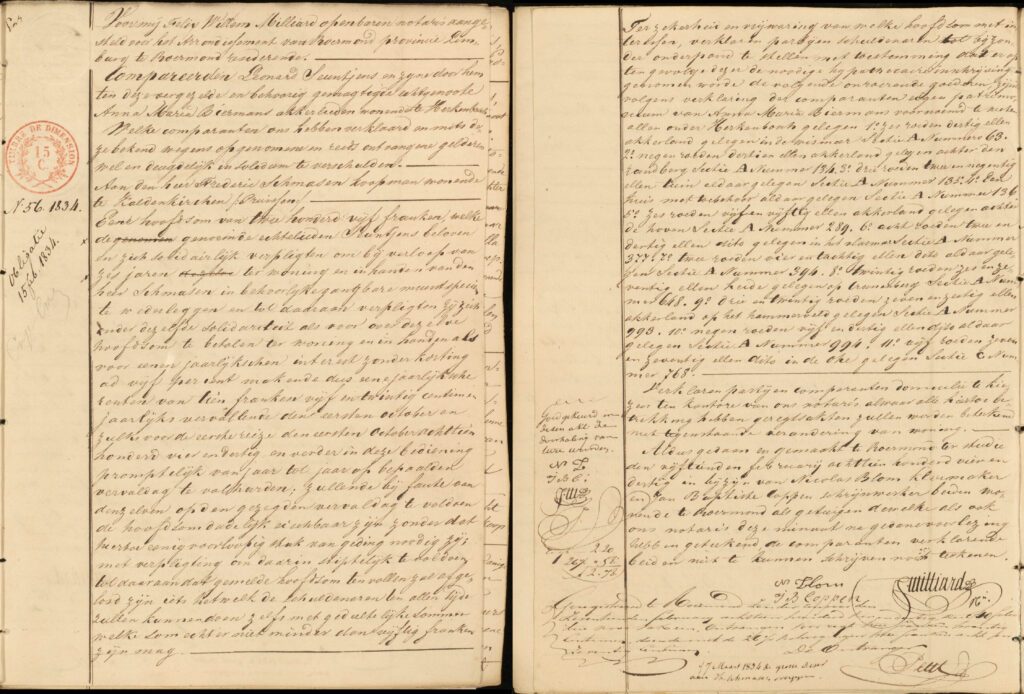 Voor mij Felix Willem Milliard openbaren notaris aange
steld voor het Arrondissement van Roermond provincie Lim
burg te Roermond residerende.
Compareerden Leonard Teuntjens en zyne door hem
ten deze vergezelde en behoorig gemagtigde echtgenoote
Anna Maria Biermans akkerlieden wonende te Herkenbosch
Welke comparanten ons hebben verklaard en mits de
ze bekend wegens opgenomene en reeds ontvangene gelden
wel en deugdelijk in solidum te verschulden.
Aan den heer Frederic Schmasen koopman wonende
te Kaldenkirchen (Pruissen)
Eene hoofdsom van twee honderd vijf franken, welke
de genoemde echtelieden Teuntjens beloven
en zich solidairlijk verpligten om bij verloop van
zes jaren ter woning en in handen van den
heer Schmasen in behoorlijke gangbare muntspecie
te wederleggen en tot daaraan verpligten zij zich
onder dezelfde solidariteit als voor over dezelve
hoofdsom te betalen ter woning en in handen als
voor eenen jaarlijkschen interest zonder korting
ad vijf per cent makende dus eene jaarlijksche
renten van tien franken vijf en twintig centimen
jaarlijks vervallende den eersten october en
zulks voor de eerste reize den eersten October achttien
honderd vier en dertig en verder in deze bediening
promptelijk van jaar tot jaar op bepaalden
vervaldag te volharden; zullende bij faute van
denzelven op den gezegden vervaldag te voldoen
de hoofdsom dadelijk eischbaar zijn zonder dat
hiertoe eenig voorloopig stuk van geding noodig zij,
met verpligting om daar in stiptelijk te voldoen
tot daaraan dat gemelde hoofdsom ten vollen zal afge
losd zijn iets hetwelk de schuldenaren ten allen tijde
zullen kunnen doen zelfs met gedeeltelijke sommen
welke som echter niet minder dan vijftig franken
zijn mag.
TIMBRE DE DIMENSION
15
N. 56. 1834.
Obligatie
15 feb. 1834.
Ter zekerheid en vrijwaring van welke hoofdsom met in
teressen, verklaren partijen schuldenaren tot bijzon
der onderpand te stellen met toestemming dat er op
ten gevolge dezer de noodige hypothecaire inschrijving
genomen worde de volgende onroerende goederen zijn
volgens verklaring der comparanten eigen patrimo
nieum van Anna Maria Biermans voornoemd te weten
allen onder Herkenbosch gelegen 1° zes roeden dertig ellen
akkerland gelegen in de wismar Sectie A Nummero 63.
2° negen roeden dertien ellen akkerland gelegen achter den
Zandberg Sectie A Nummer 134. 3° drie roeden twee en negentig
ellen tuin aldaar gelegen Sectie A Nummer 135. 4° Een
huis met toebehoor aldaar gelegen Sectie A Nummer 136
5° zes roeden vijf en vyftig ellen akkerland gelegen achter
de hoven Sectie A Nummer 289. 6° acht roeden twee en
dertig ellen dito gelegen in het Sectie A Nummer
377. 7° twee roeden vier en tachtig ellen dito aldaar gele
gen Sectie A Nummer 394. 8° twintig roeden zes en ze
ventig ellen heide gelegen op Sectie A Num
mer 618. 9° drie en twintig roeden zeven en zestig ellen
akkerland op het hammerveld gelegen Sectie A Nummer
993. 10° negen roeden vijf en dertig ellen dito aldaar
gelegen Sectie A Nummer 994. 11° vijf roeden zeven
en zeventig ellen dito in de Ohe gelegen Sectie C Num
mer 768.
Verklaren partijen comparanten domicilie te kie
zen ten kantore van ons notaris alwaar alle hiertoe be
trekking hebbende geregtsakten zullen worden beteekend
niet tegenstaande verandering van woning.
Aldus gedaan en gemaakt te Roermond ter studie
den vijftienden februarij achttien honderd vier en
dertig in bijzyn van Nicolas Blom kleermaker
en Jan Baptiste Coppen schrijnwerker beiden wo
nende te Roermond als getuigen dewelke als ook
ons notaris deze minuut na gedane voorlezing
hebben geteekend de comparanten verklarende
beiden niet te kunnen schrijven noch teekenen.
N Blom
J B Coppen
Milliard
Nis.
Goedgekeurd in
dezen akt de
doorhaling van
twee woorden.
2.20
57
2.78
17 Maart 1834 de grosse